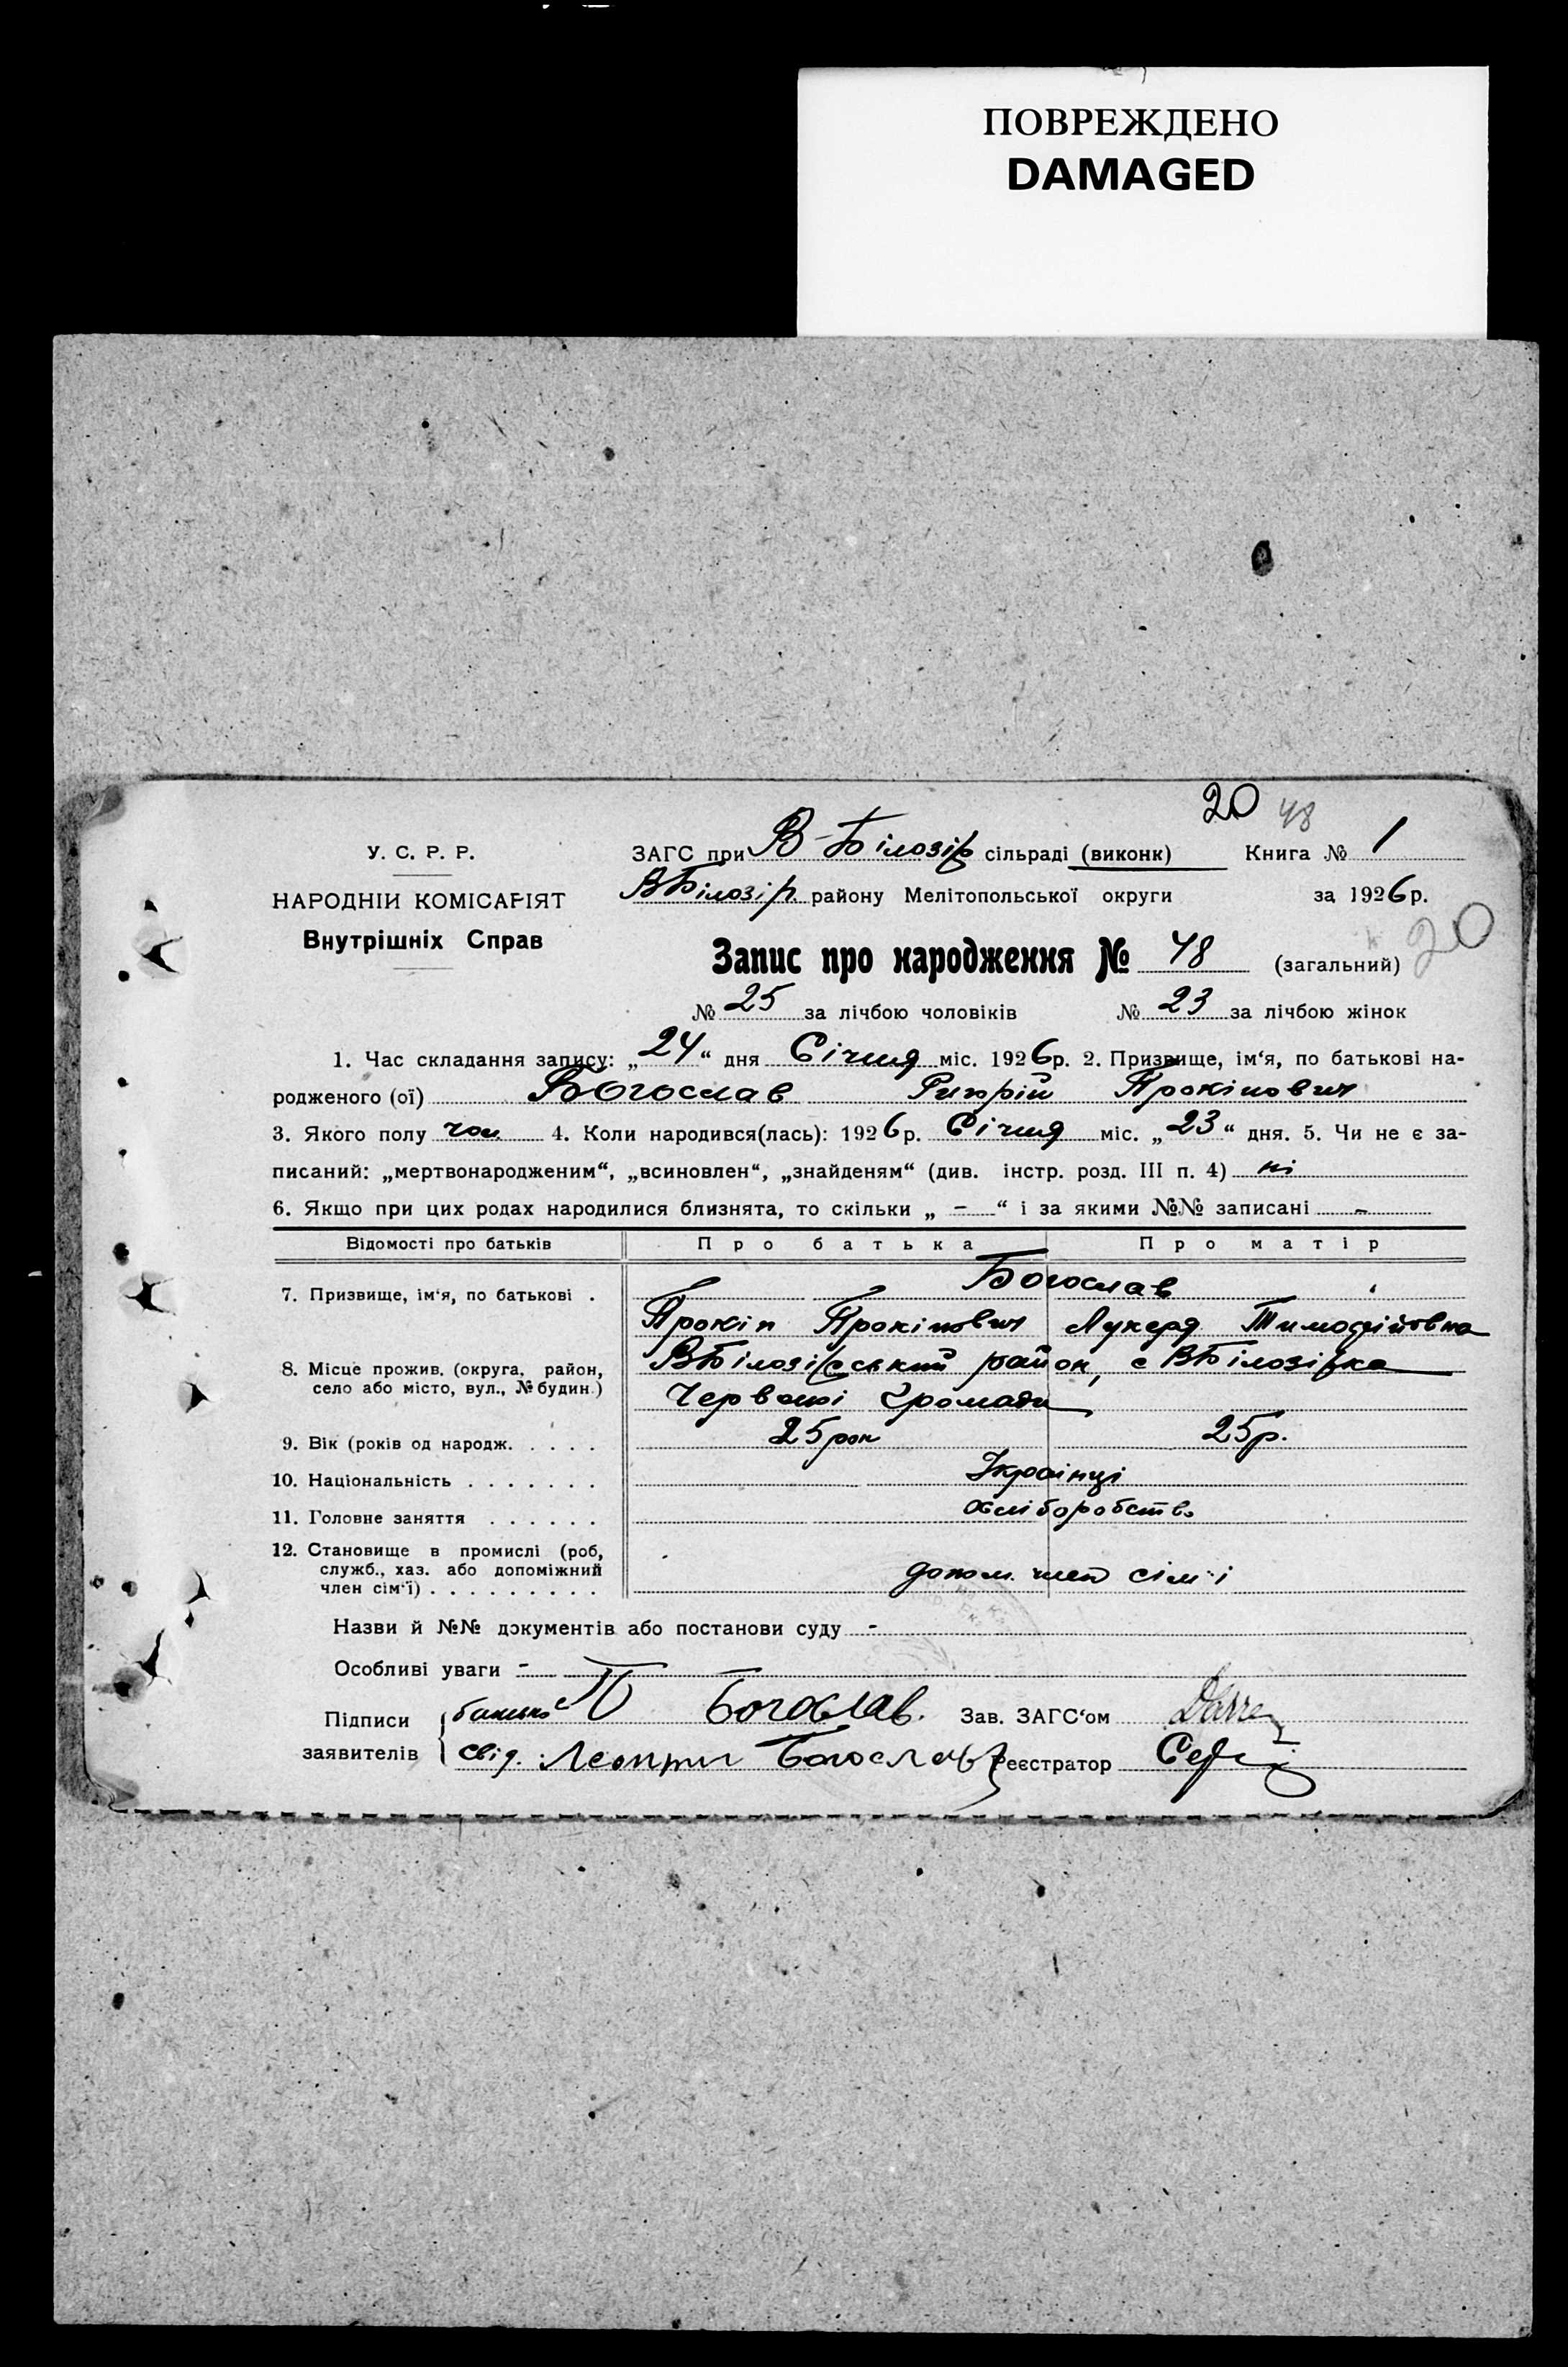 ПОВРЕЖДЕНО
DAMAGED
20 48
У. С. Р. Р.
ЗАГС при В-Білозір сільраді (виконк) Книга № 1
НАРОДНІИ КОМІСАРІЯТ
ВБілозір. району Мелітопольської округи за 1926р.
Внутрішніх Справ
Запис про народження № 48 (загальний) 20
№ 25 за лічбою чоловіків № 23 за лічбою жінок
1. Час складання запису: „24“ дня Січня міс. 1926р. 2. Призвище, ім‘я, по батькові на-
родженого (ої) Богослав Григорій Прокіпович
3. Якого полу чол. 4. Коли народився(лась): 1926р. Січня міс. „23“ дня. 5. Чи не є за-
писаний: „мертвонародженим“, „всиновлен“, „знайденям“ (див. інстр. розд. III п. 4) ні
6. Якщо при цих родах народилися близнята, то скільки „ - “ і за якими №№ записані -
Відомості про батьків Про батька Про матір
7. Призвище, ім‘я, по батькові . Богослав
Прокіп Прокіпович Лукеря Тимофійовна
8. Місце прожив. (округа, район, село або місто, вул., № будин.) ВБілозірський район, с ВБілозірка
Червоної Громади
9. Вік (років од народж. . . . . 25 рок 25р.
10. Національність . . . . . . . Українці
11. Головне заняття . . . . . . хліборобство
12. Становище в промислі (роб,
служб., хаз. або допоміжний
член сім‘ї) . . . . . . . . . допом. член сім'ї
Назви й №№ документів або постанови суду -
Особливі уваги -
Підписи батько П Богослав. Зав. ЗАГС‘ом
заявителів свід. Богослав Реєстратор